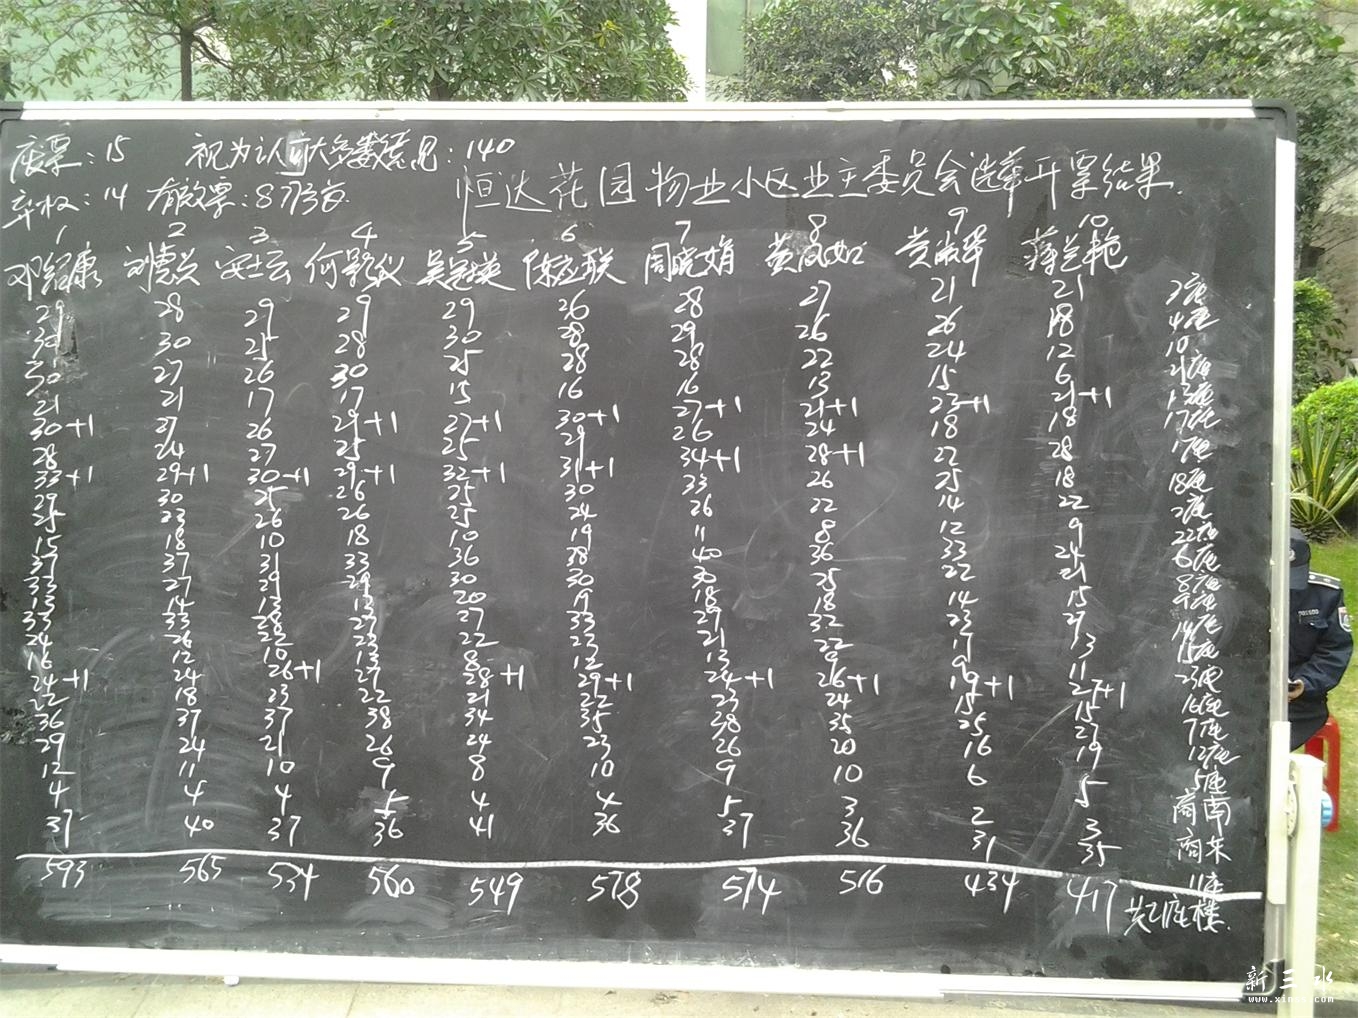 废票:15 视为认可大多数意见:140
弃权:14 有效票:
恒达花园物业小区业主委员会选举开票结果.
1 2 3 4 5 6 7 8 9 10
刘德兴 安士云
29 28 29 29 29 26 28 27 21 21 3座
30 25 28 30 28 29 26 26 18 4座
30 27 26 30 25 28 28 22 24 12 10
21 21 17 17 15 16 16 13 15 6 21座
30+1 27 26 29+1 27+1 30+1 27+1 21+1 23+1 21+1 13座
28 24 27 25 25 29 26 24 18 18 17座
33+1 29+1 30+1 29+1 32+1 31+1 34+1 28+1 22 28 1座
29 30 25 26 25 30 33 26 25 18 18座
25 23 26 26 25 24 26 22 14 22 2座
15 18 10 18 10 19 11 8 12 9 22座
37 37 31 33 36 38 40 36 33 24 6座
33 27 29 29 30 30 30 25 22 21 8座
13 14 13 20 19 18 18 14 15 9座
33 33 28 27 27 33 29 32 23 27 14座
24 26 22 23 22 23 21 22 17 13 15座
16 12 10 13 8 12 13 9 11 23座
24+1 24 26+1 27 28+1 29+1 24+1 26+1 19+1 27+1 16座
22 18 23 22 21 22 23 24 15 15 7座
36 37 37 38 34 35 38 35 25 27 12座
29 24 21 26 24 23 26 20 16 19 5座
12 11 10 9 8 10 9 10 6 5 商南
4 4 4 5 4 4 5 3 2 3 商东
37 40 37 36 41 36 37 36 31 35 11座
593 565 534 560 549 578 574 516 434 417 共21座楼.
新三水
www.xinss.com